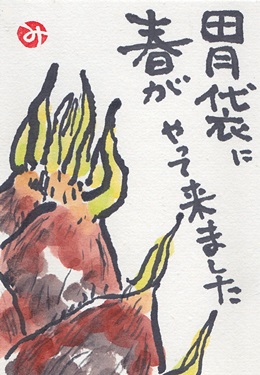 胃袋に
春がやって来ました
み